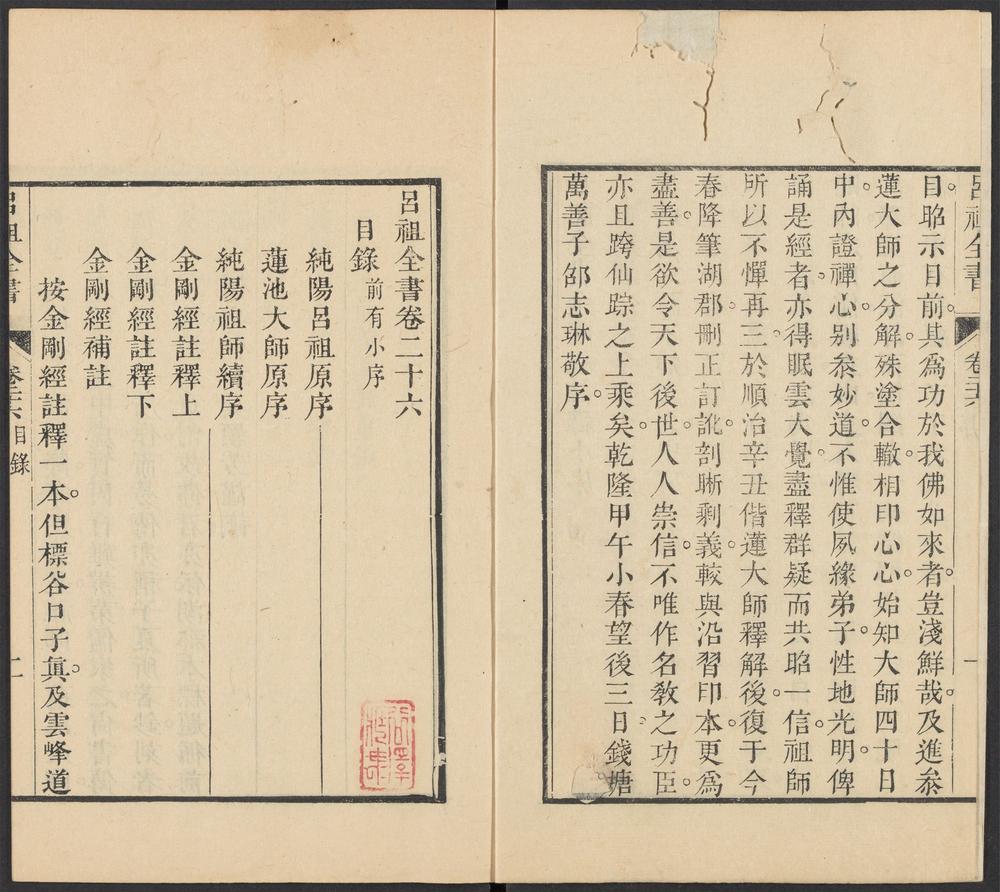 呂祖全書 卷二十六 一
目昭示目前。其爲功於我佛如來者。豈淺鮮哉。及進叅
蓮大師之分解。殊塗合轍。相印心心。始知大師四十日
中。內證禪心。别叅妙道。不惟使夙緣弟子。性地光明。俾
誦是經者。亦得眠雲大覺。盡釋群疑。而共昭一信。祖師
所以不憚再三。於順治辛丑。偕蓮大師釋解後。復于今
春降筆湖郡。刪正訂訛。剖晰剩義。較與沿習印本。更爲
盡善。是欲令天下後世。人人崇信。不唯作名敎之功臣。
亦且跨仙踪之上乘矣。乾隆甲午小春望後三日。錢塘
萬善子邵志琳敬序。
呂祖全書卷二十六
目錄 前有小序
純陽呂祖原序
蓮池大師原序
純陽祖師續序
金剛經註釋上
金剛經註釋下
金剛經補註
按金剛經註釋一本。但標谷口子眞。及雲峰道
呂祖全書 卷二十六目錄 一